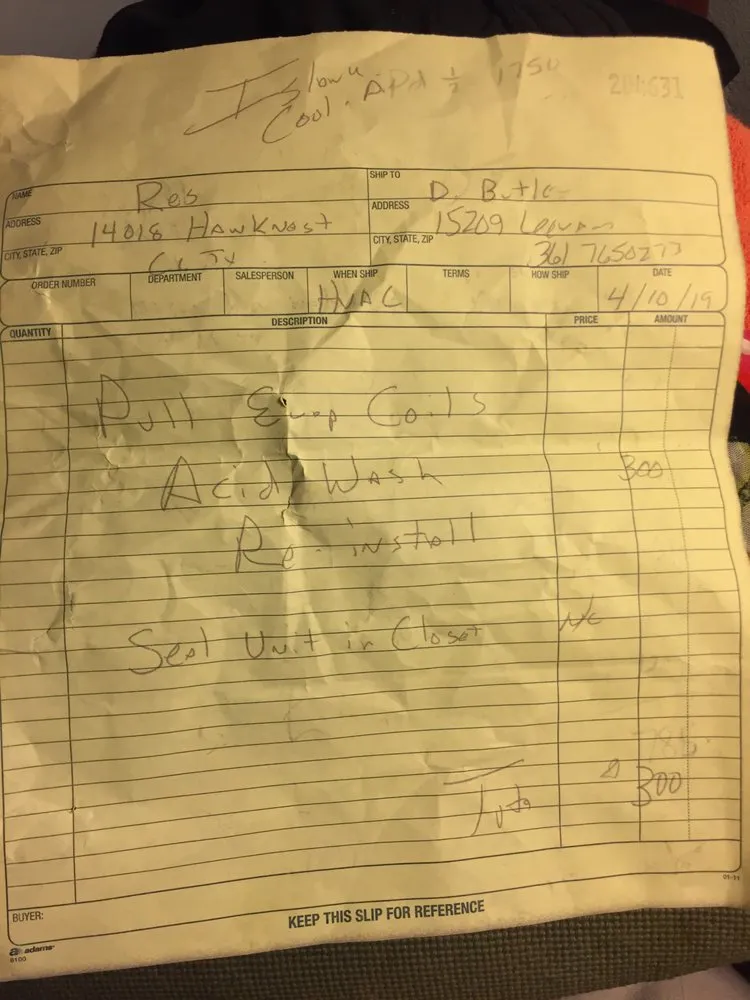 Cool. 1750
201631
NAME Res SHIP TO D. Butle
ADDRESS 14018 HawKnest ADDRESS 15209
CITY, STATE, ZIP CITY, STATE, ZIP 361 7650273
ORDER NUMBER DEPARTMENT SALESPERSON WHEN SHIP TERMS HOW SHIP DATE
HVAC 4/10/19
QUANTITY DESCRIPTION PRICE AMOUNT
Pull Evap Coils
Acid Wash 300
Re-install
Seal Unit in Closet N/C
785.
300
01-11
BUYER: KEEP THIS SLIP FOR REFERENCE
adams
8100